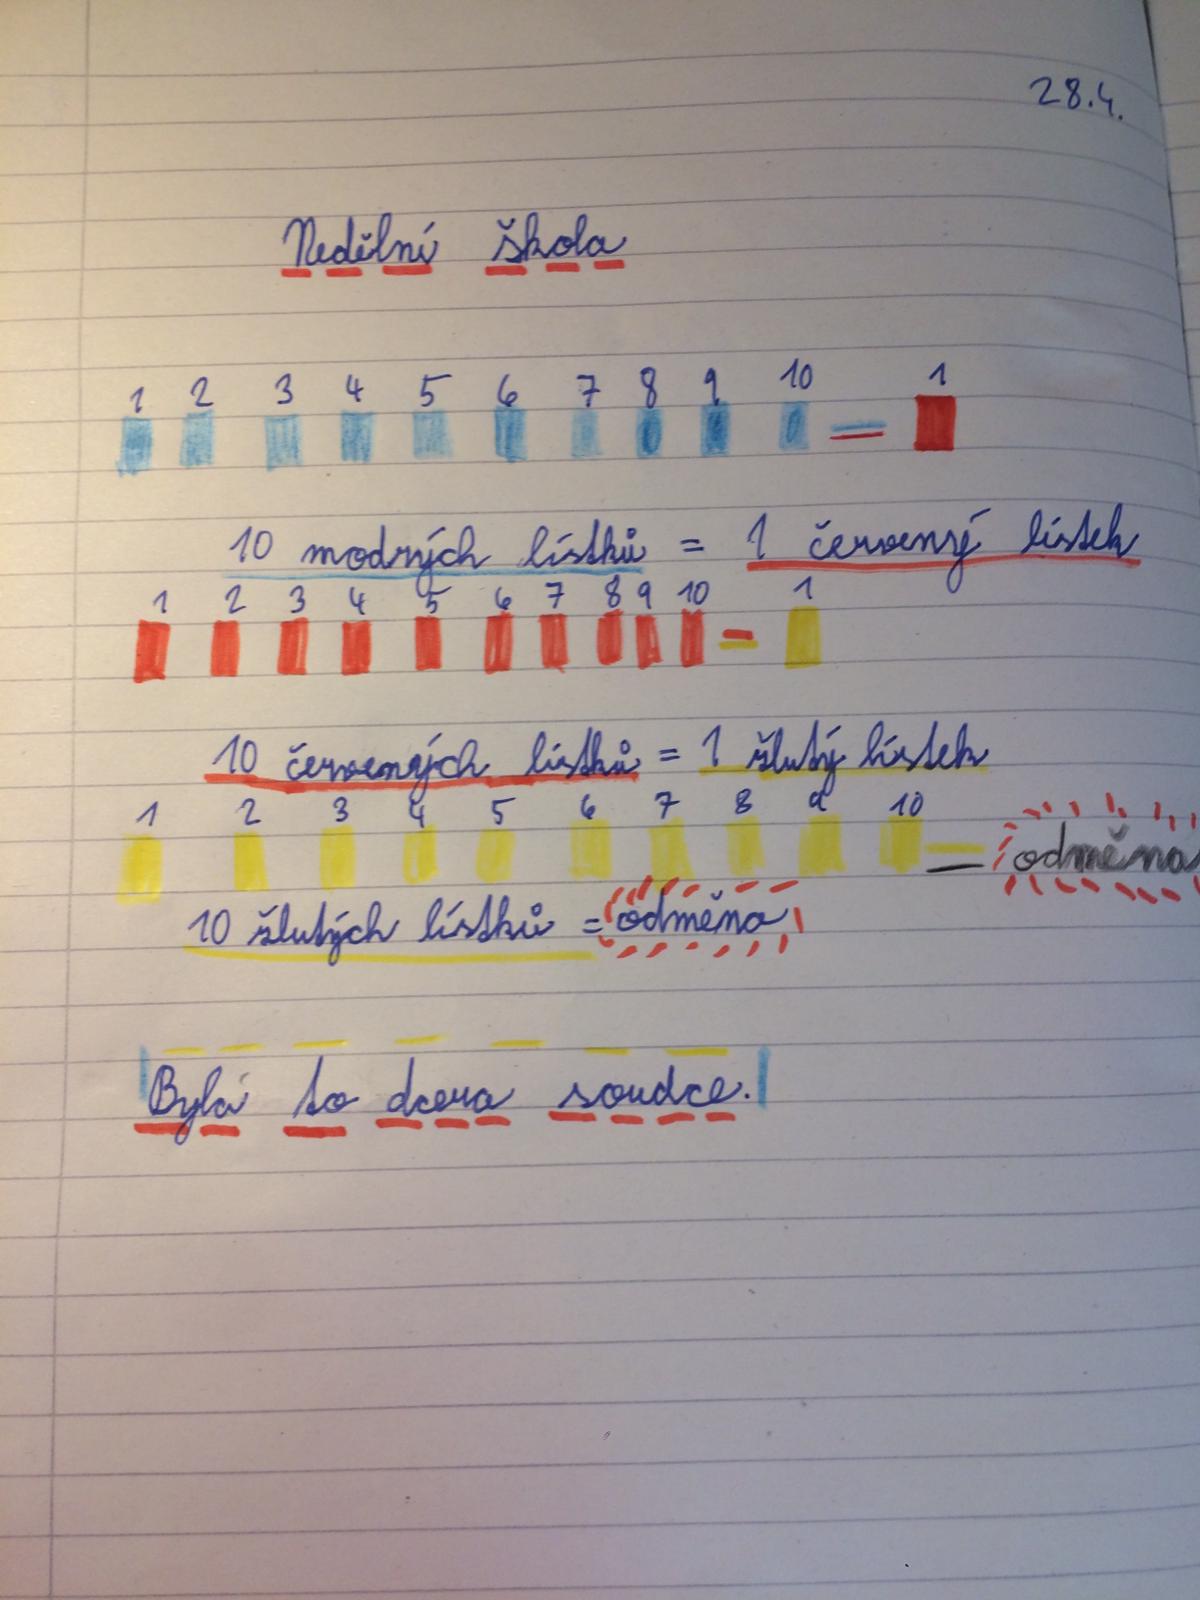 28.4.
Nedělní škola
1 2 3 4 5 6 7 8 9 10 = 1
10 modrých lístků = 1 červený lístek
1 2 3 4 5 6 7 8 9 10 = 1
10 červených lístků = 1 žlutý lístek
1 2 3 4 5 6 7 8 9 10 = odměna
10 žlutých lístků = odměna
Byla to dcera soudce.